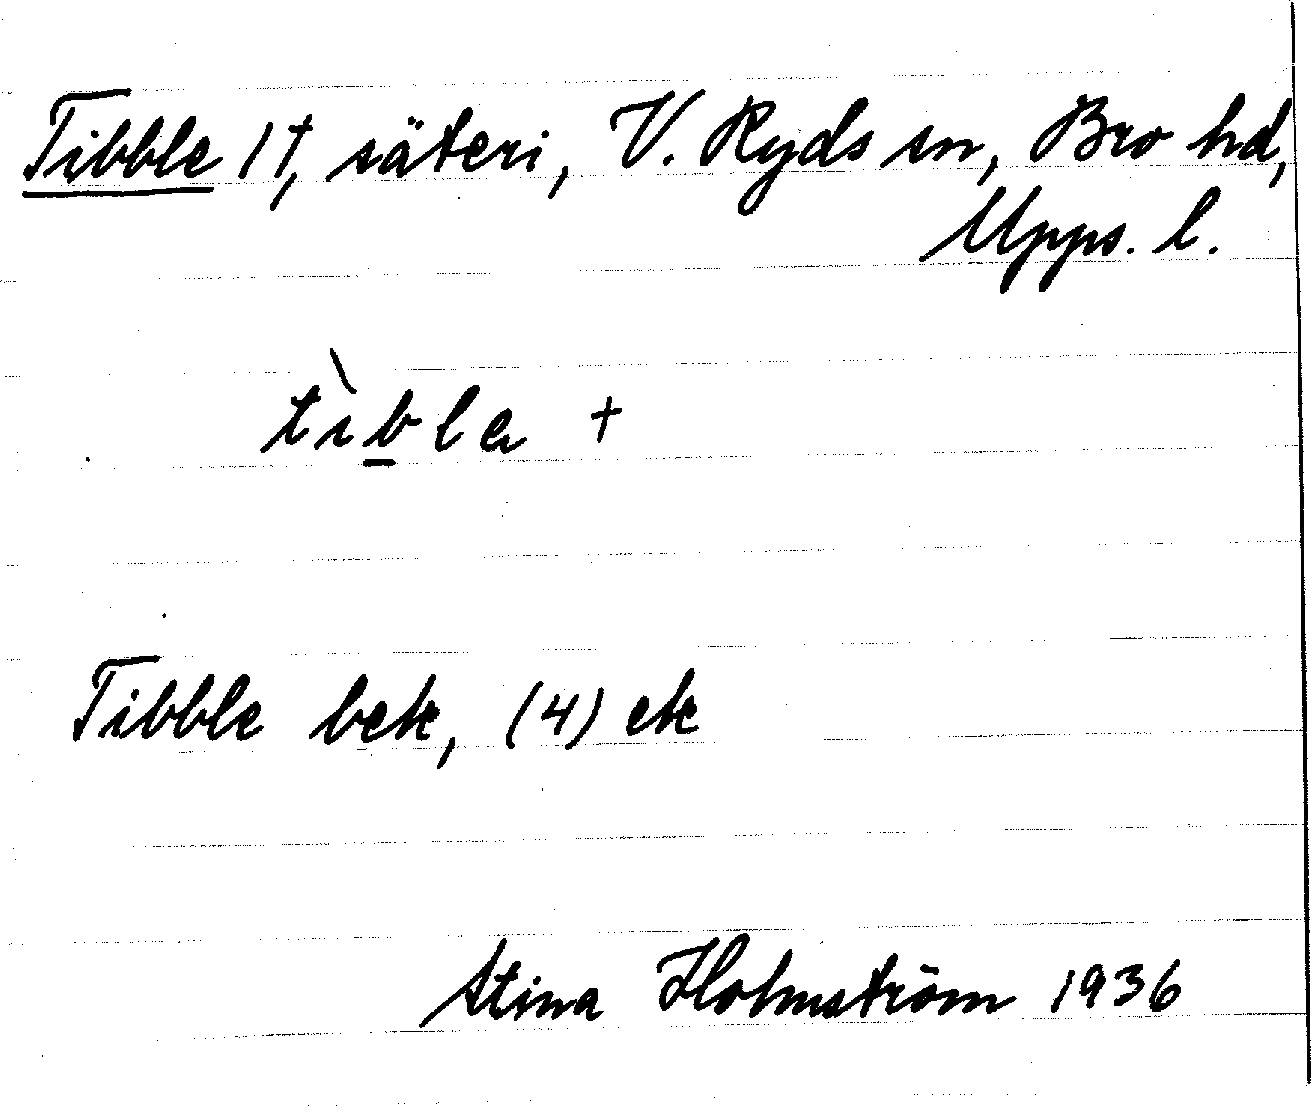 Tibble 1†, säteri, V. Ryds sn, Bro hd,
Upps. l.
tìbla +
Tibble bek, (4) ek
Stina Holmström 1936